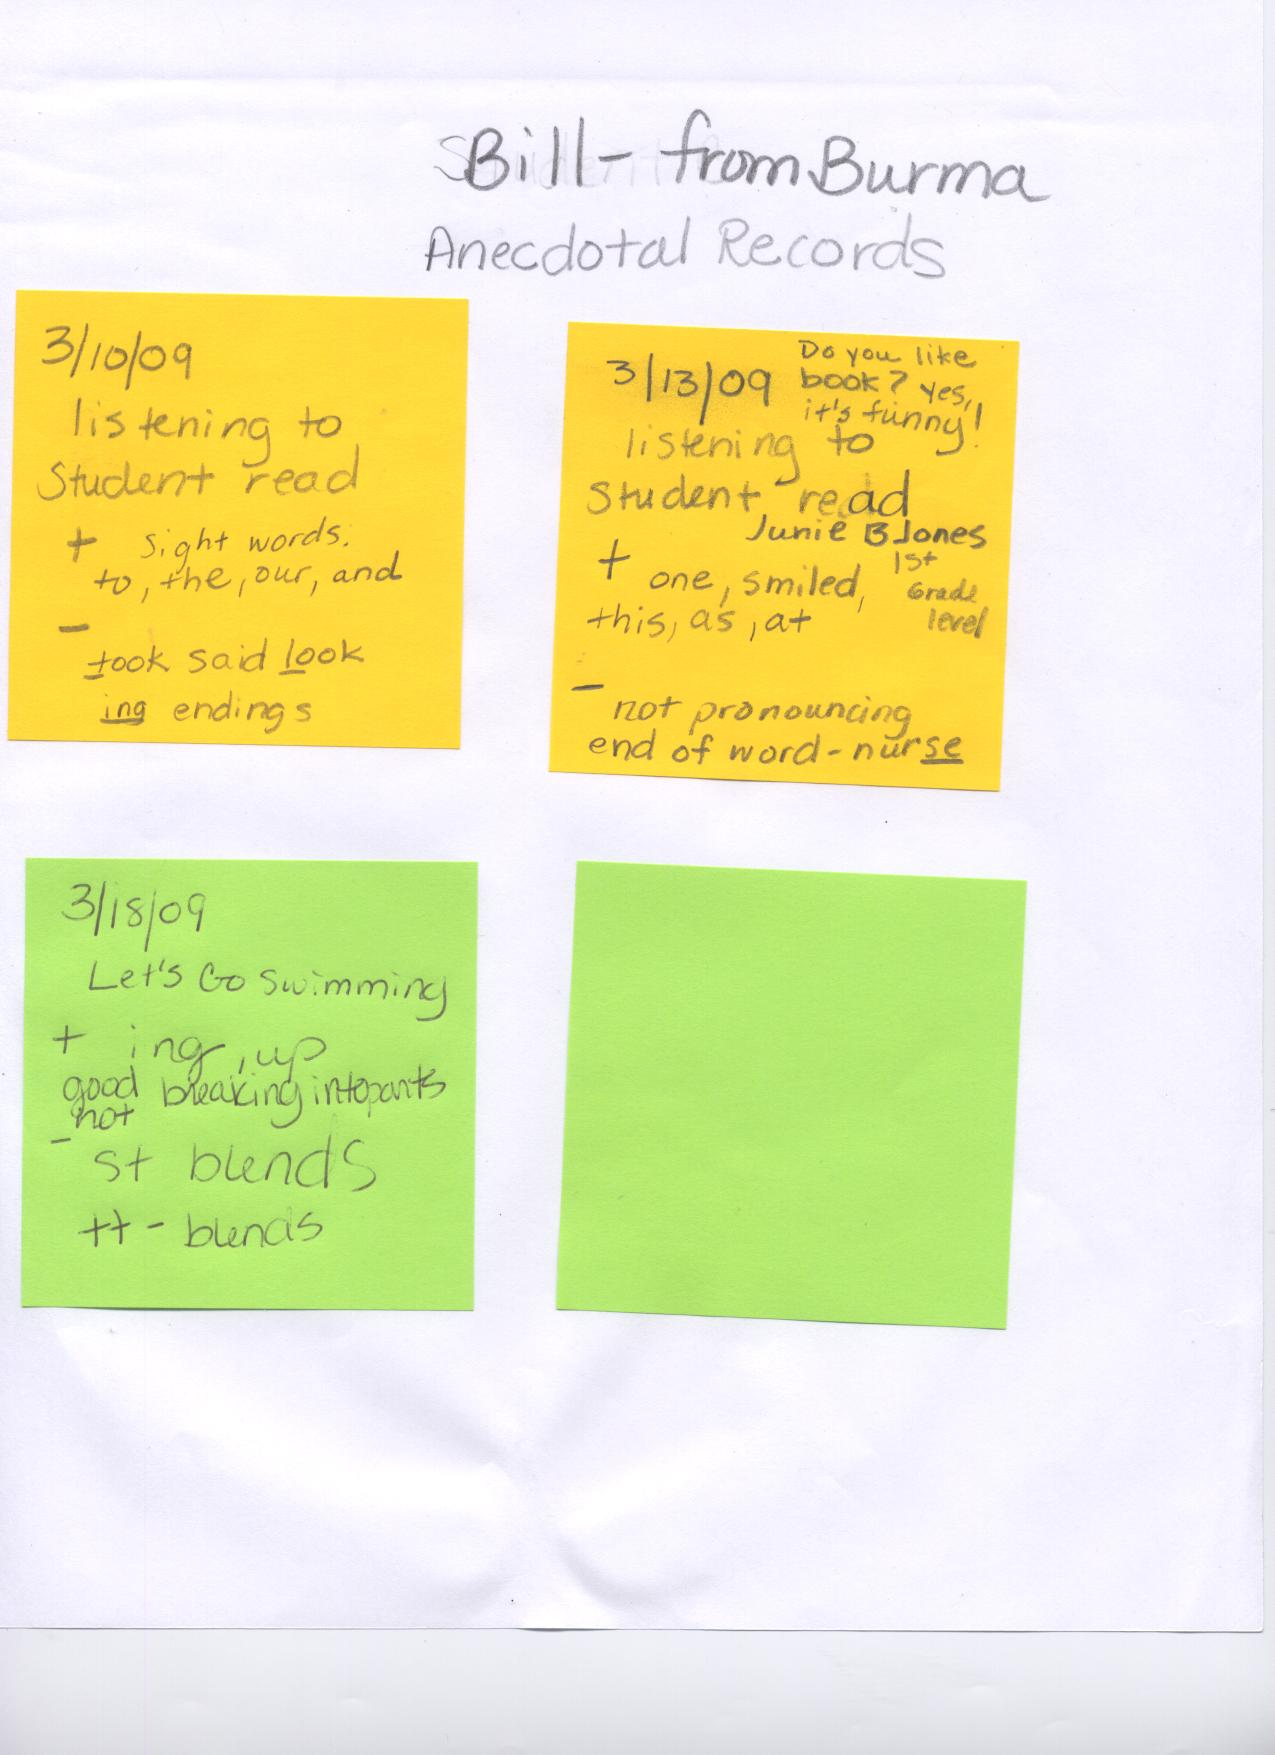 Bill - from Burma
Anecdotal Records
3/10/09
listening to
Student read
+ sight words:
to, the, our, and
-
took said look
ing endings
3/13/09
Do you like
book? yes,
it's funny!
listening to
Student read
Junie B Jones
1st
Grade
level
+ one, smiled,
this, as, at
-
not pronouncing
end of word - nurse
3/18/09
Let's Go Swimming
+ ing, up
good breaking into parts
not
-
st blends
tt - blends